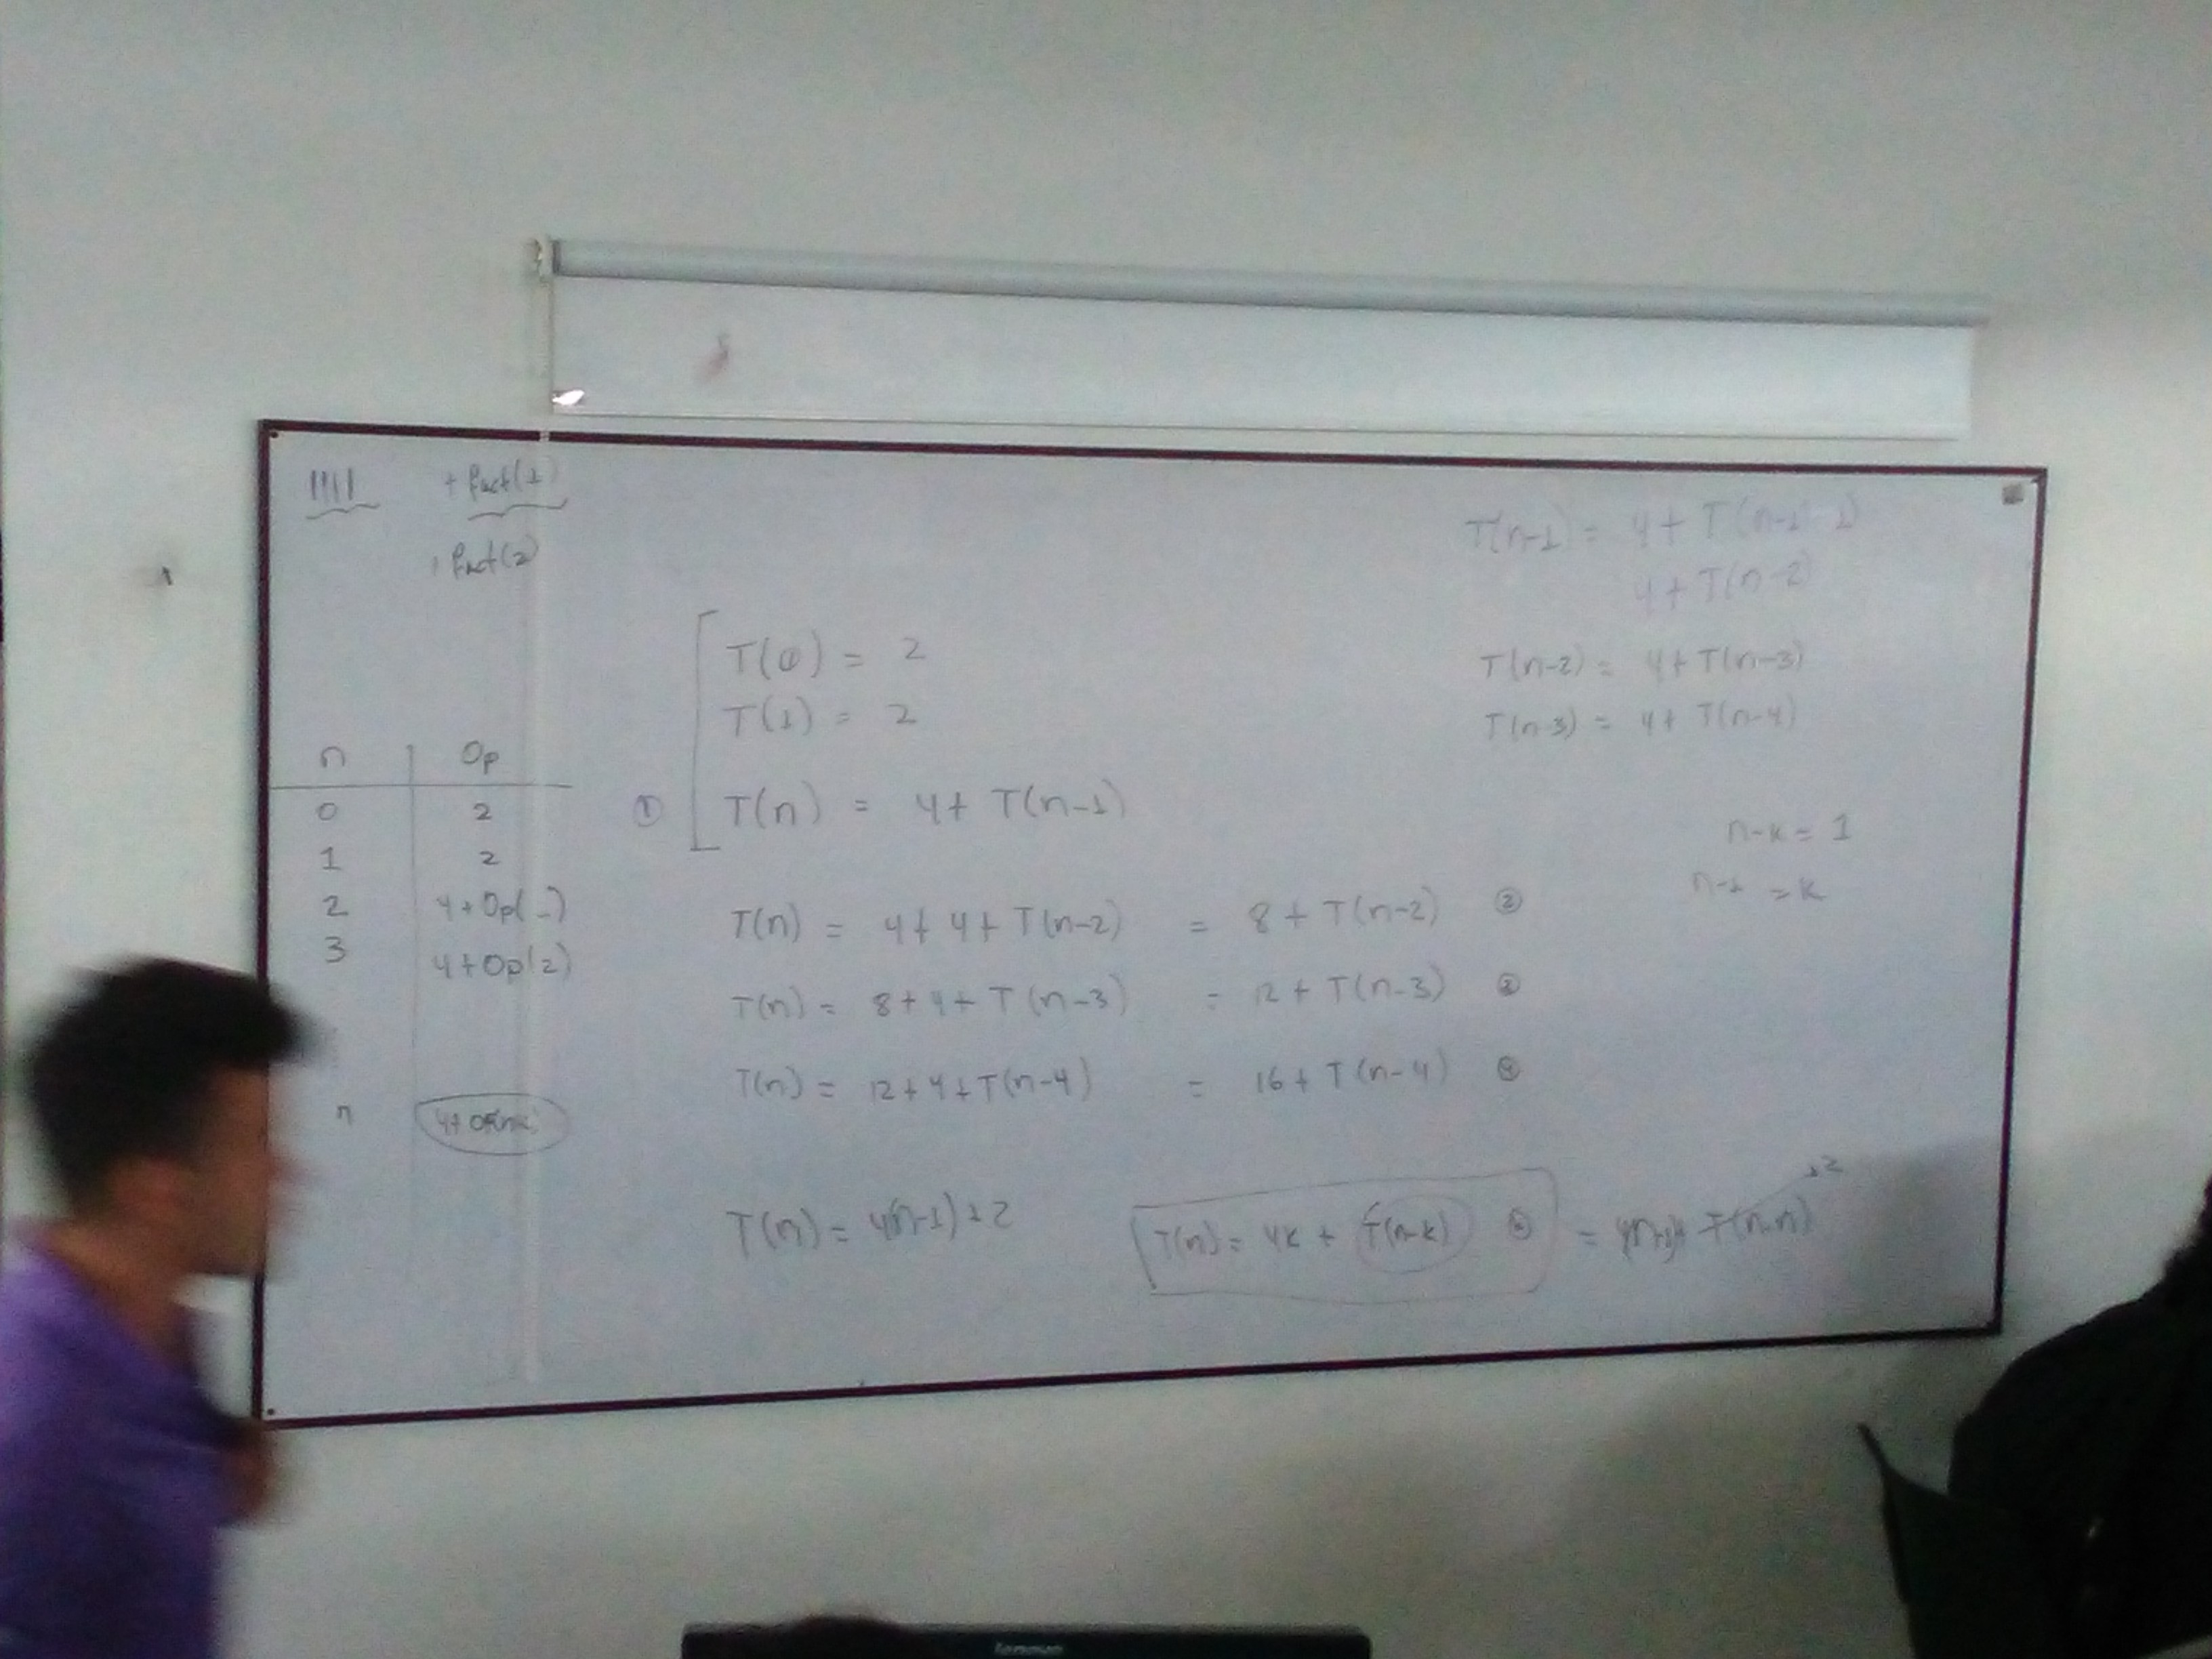 IIII + fact(1)
fact(2)
n Op
0 2
1 2
2 4+Op( )
3 4+Op(2)
n
T(0) = 2
T(1) = 2
① T(n) = 4+ T(n-1)
T(n) = 4+4+T(n-2) = 8+T(n-2) ②
T(n) = 8+4+T(n-3) = 12+T(n-3) ③
T(n) = 12+4+T(n-4) = 16+T(n-4) ④
T(n) = 4(n-1)+2
T(n) = 4k + T(n-k) =
T(n-1) = 4+T(n-1-1)
4+T(n-2)
T(n-2) = 4+T(n-3)
T(n-3) = 4+T(n-4)
n-k = 1
n-1 = k
lenovo